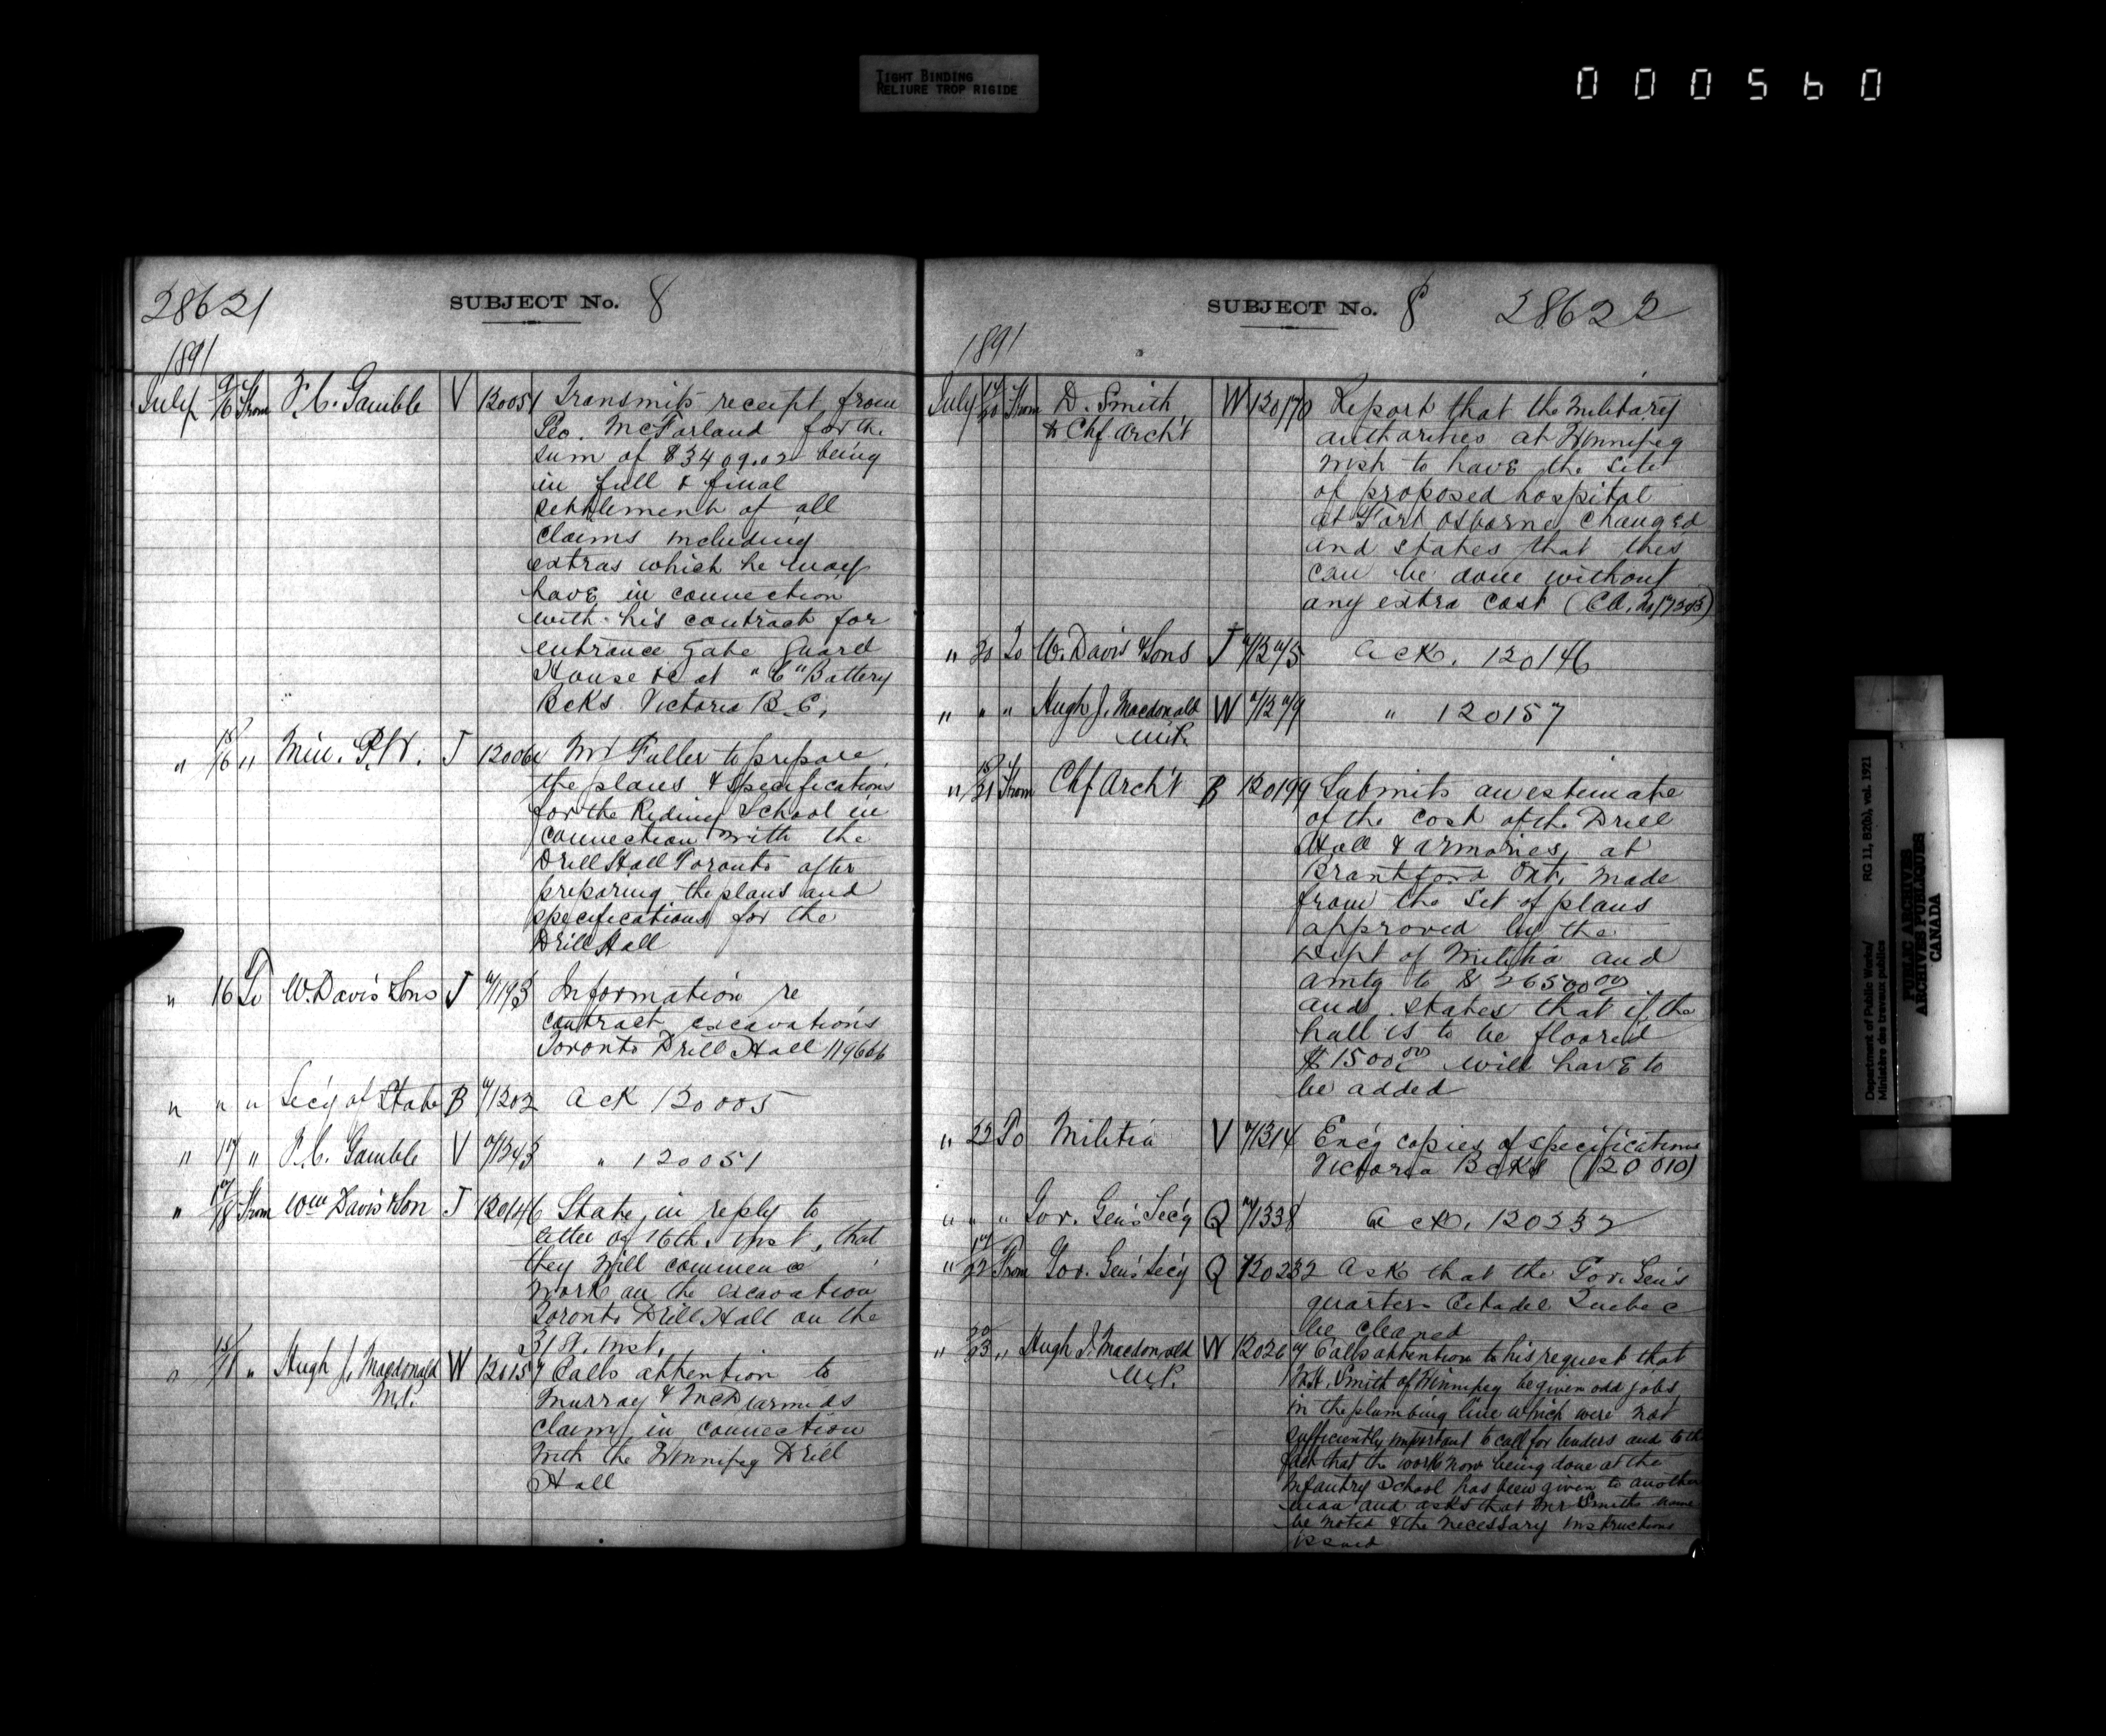 TIGHT BINDING
RELIURE TROP RIGIDE
000560
28621
SUBJECT No. 8
1891
July 9/16 From F. C. Gamble V 120051 Transmits receipt from
Geo. McFarland for the
sum of $3409.02 being
in full & final
settlement of all
claims including
extras which he may
have in connection
with his contract for
entrance gate Guard
House &c at "C" Battery
Bcks Victoria B.C.
" 16 " Min. P.W. J Mr Fuller to prepare
the plans & specifications
for the Riding School in
connection with the
Drill Hall Toronto after
preparing the plans and
specifications for the
Drill Hall
" 16 To W. Davis & Sons J Information re
contract excavations
Toronto Drill Hall 119666
" " " Sec'y of State B Ack 120005
" 17 " F. C. Gamble V " 120051
" 17/18 From Wm Davis & Son J 120146 State, in reply to
letter of 16th inst, that
they will commence
work on the excavation
Toronto Drill Hall on the
21st. inst.
" " Hugh J. Macdonald W 120157 Calls attention to
M.P. Murray & McDiarmids
claim, in connection
with the Winnipeg Drill
Hall
SUBJECT No. 8 28622
1891
July 14/20 From D. Smith W 120170 Report that the Military
& Chf. Arch't authorities at Winnipeg
wish to have the site
of proposed hospital
at Fort Osborne changed
and states that this
can be done without
any extra cost
" 20 To W. Davis & Sons J Ack. 120146
" " " Hugh J. Macdonald W " 120157
M.P.
" 21 From Chf Arch't B 120199 Submits an estimate
of the cost of the Drill
Hall & armories, at
Brantford Ont. made
from the set of plans
approved by the
Dept of Militia and
amtg to $26500.00
and states that if the
hall is to be floored
$1500.00 will have to
be added
" 22 To Militia V Enc'g copies of specifications
Victoria Bcks (120010)
" " " Gov. Gen's Sec'y Q Ack. 120232
" 17/22 From Gov. Gen's Sec'y Q 120232 Ask that the Gov. Gen's
quarters Citadel Quebec
be cleaned
" 20/23 " Hugh J. Macdonald W 120267 Calls attention to his request that
M.P. Mr. Smith of Winnipeg be given odd jobs
in the plumbing line which were not
sufficiently important to call for tenders and to the
fact that the work now being done at the
Infantry School has been given to another
man and asks that Mr Smith's name
be noted & the necessary instructions
issued
Department of Public Works/
Ministère des travaux publics
RG 11, B2(b), vol. 1921
PUBLIC ARCHIVES
ARCHIVES PUBLIQUES
CANADA